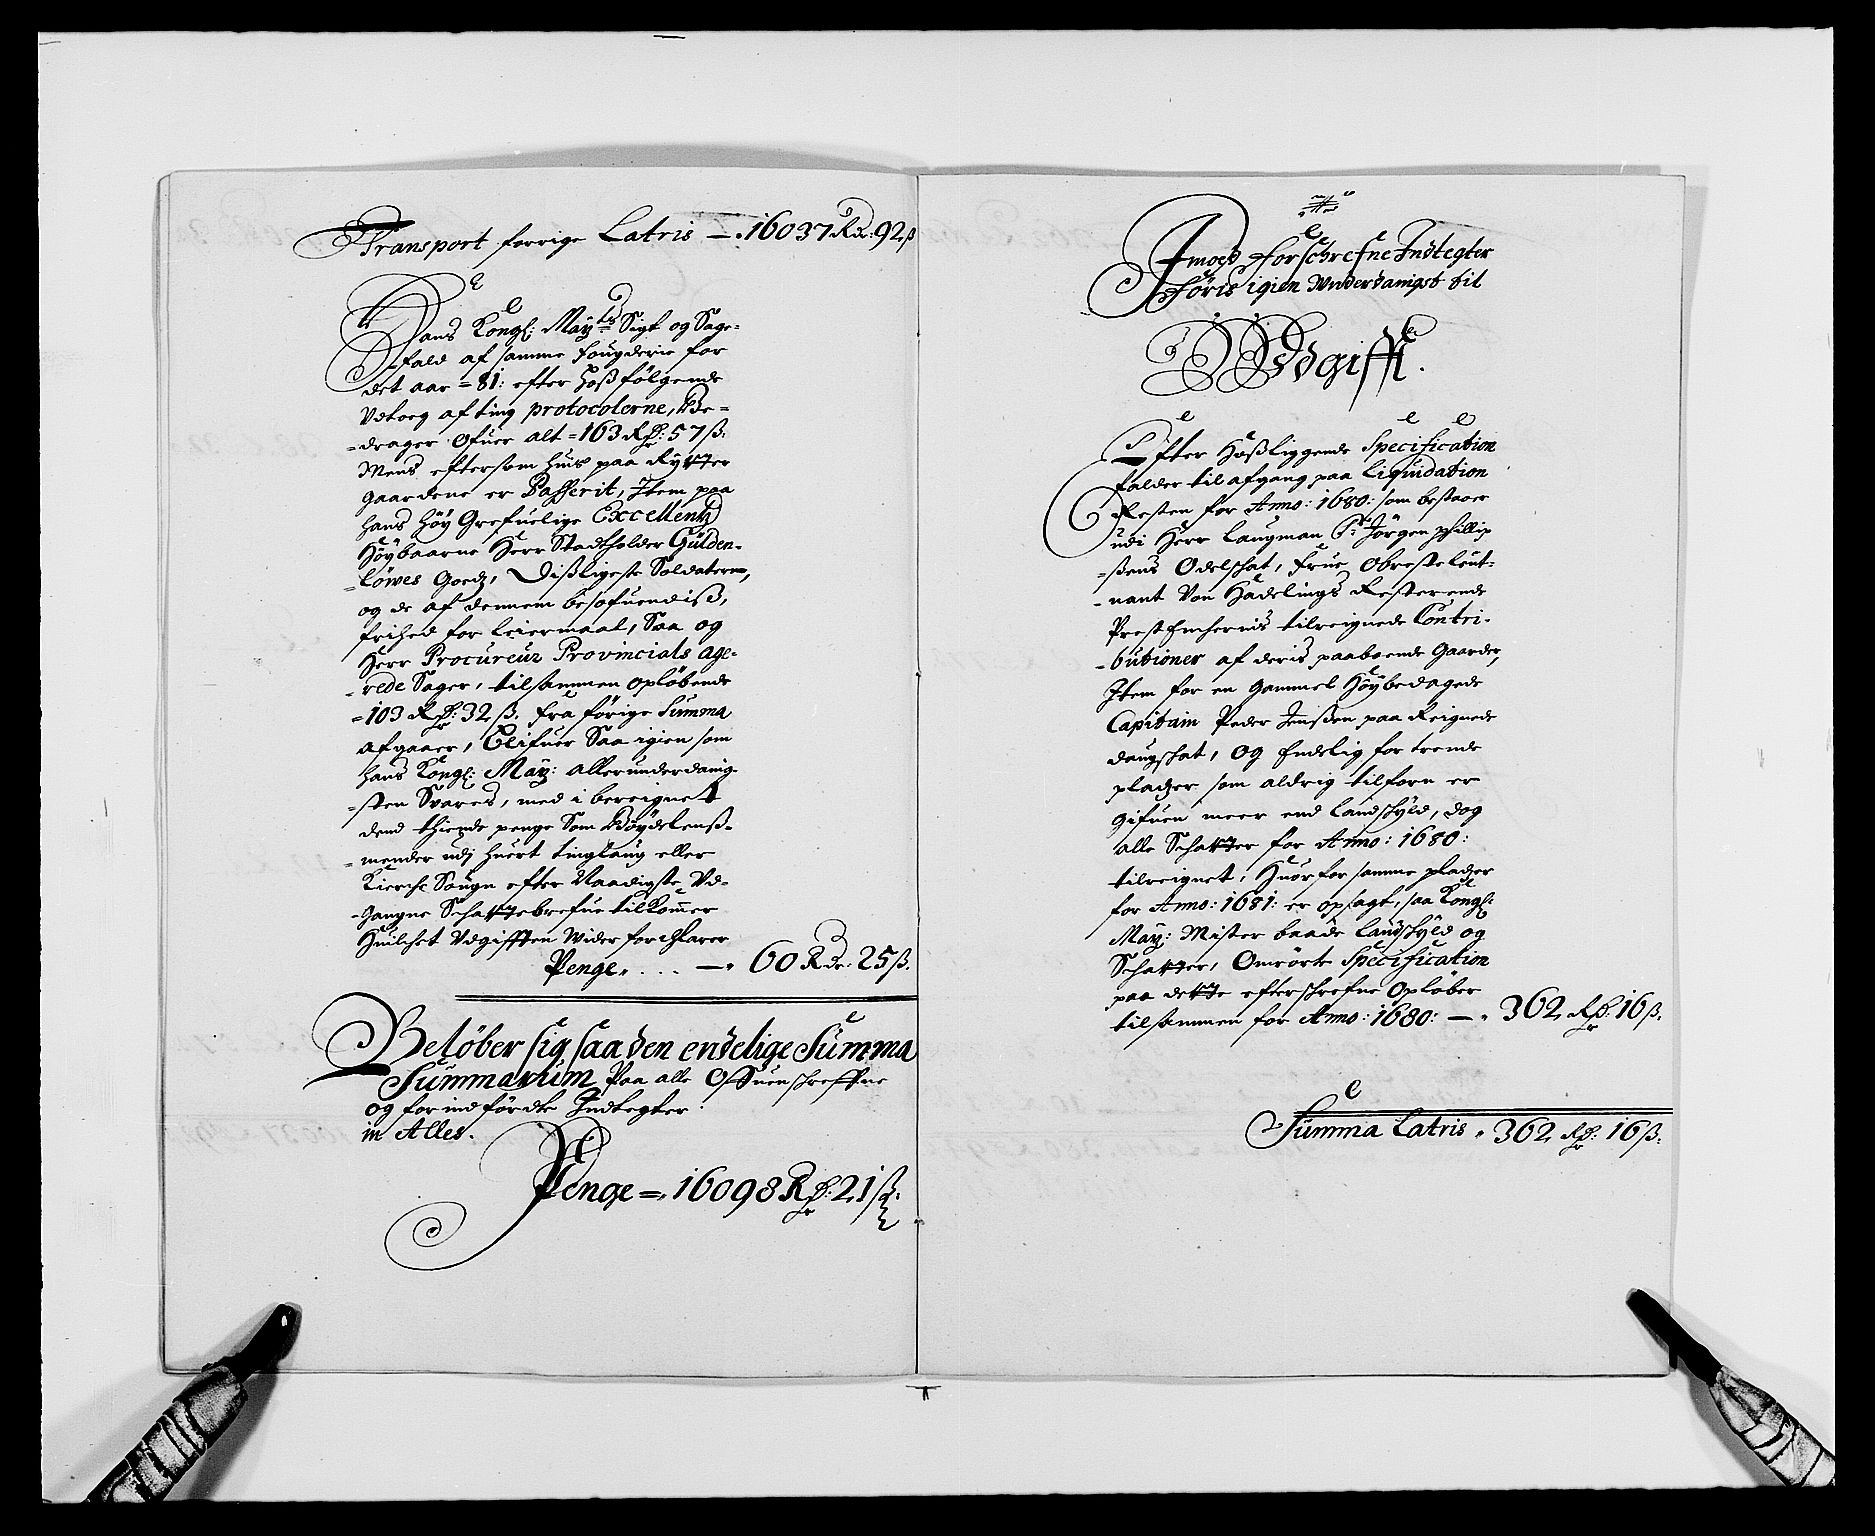 Transport forrige Latris — 16037 Rdr: 92 ß
Hans Kongl: Mayts Sigt og Sage-
fald af samme Fougderie for
det aar = 81: efter hoßfølgende
Udtoeg af ting protocolerne, Be-
-drager Ofuer alt = 163 Rdr: 57 ß:
Mens eftersom huis paa Rytter
gaardene er Passerit, Item paa
hans Høy Grefuelige Excellentz
Høybaarne Herr Stadtholder Gülden-
-löwes Goedz, Dißligeste Soldaterne,
og de af dennem besofuendiß,
frihed for leiermaal, Saa og
Herr Procureur Provincials age-
-rede Sager, tilsammen opløbende
= 103 Rdr: 32 ß. fra førige Summa
afgaaer, Blifuer Saa igien som
hans Kongl: May: allerunderdanig-
-sten Svares, med i bereignet
dend thiende penge Som Bøydelenß-
-mender udj huert tinglaug eller
Kierche Sougn efter Naadigste Ud-
-gangne Schattebrefue tilkommer
Huilchet Udgifften Wider forchlarer
Penge. . . . — 60 Rdr: 25 ß.
Beløber sig saa den endelige Summa
Summarum Paa alle Offuenschreffne
og forindførdte Indtegter
in Alles.
Penge = 16098 Rdr: 21 ß:
Imoed forschrefne Indtegter
føris igien Underdanigst til
Udgifft.
Efter Hoßliggende Specification
falder til afgang paa Liquidation
Resten for Anno: 1680: som bestaaer
udi Herr Laugman Sr Jørgen phillip
-ßens Odelschat, Frue Obersteleut-
-nant Von Hadelings Resterende
Prest Enchernis tilreignede Contri-
-butioner af deris paaboende Gaarder,
Item for en gammel Høybedagede
Capitain Peder Jenßen paa Reignede
daugschat, og Endelig for trende
pladzer som aldrig tilforn er
gifuen meer end landschyld, dog
alle Schatter for Anno: 1680:
tilreignet, Huorfor samme pladzer
for Anno: 1681: er opsagt, saa Kongl:
May: Mister baade Landschyld og
Schatter, Omrørte Specification
paa dette efterschrefne Opløber
tilsammen for Anno: 1680: — 362 Rdr: 16 ß.
Summa Latris . 362 Rdr: 16 ß.